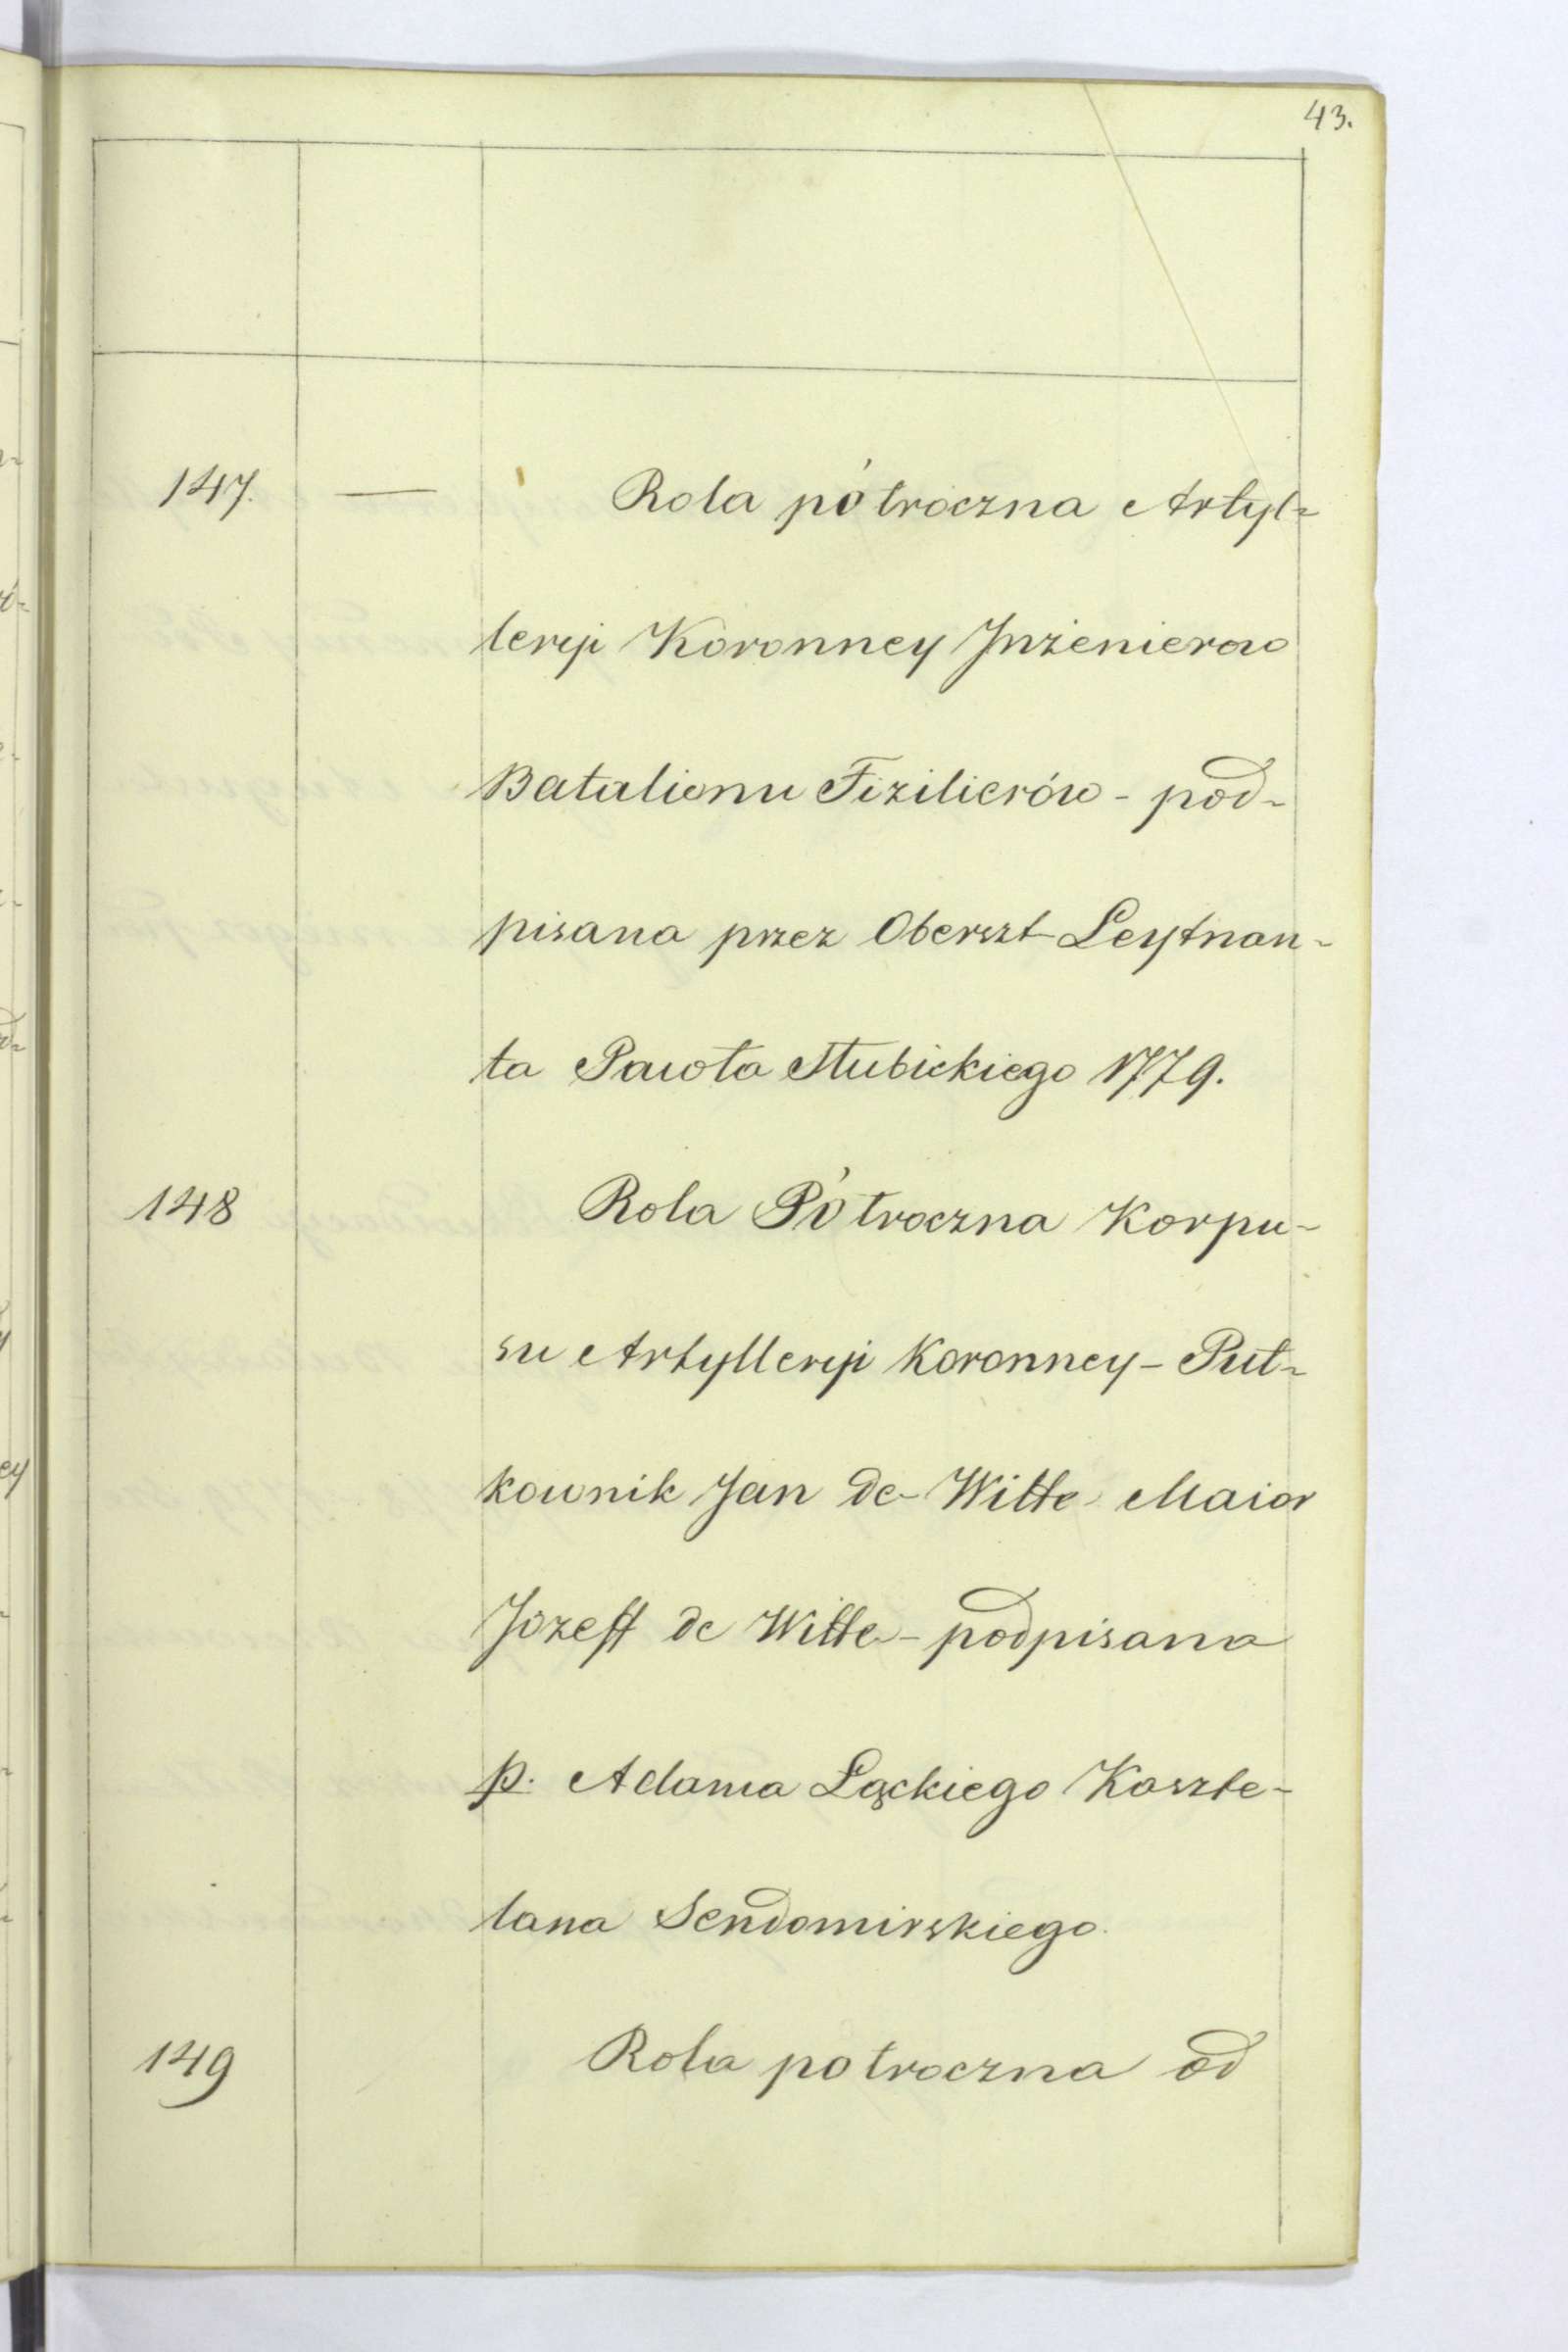 43.
147. — Rola półroczna Artyl-
leryi Koronney Jnżenierow
Batalionu Fizilierów - pod-
pisana przez Oberszt-Leytnan-
ta Pawoła Stubickiego 1779.
148 Rola Półroczna Korpu-
su Artylleryi Koronney - Puł-
kownik Jan de-Witte Maior
Jozeff de Witte - podpisana
p. Adama Łąckiego Kaszte-
lana Sendomirskiego.
149 Rola połroczna od